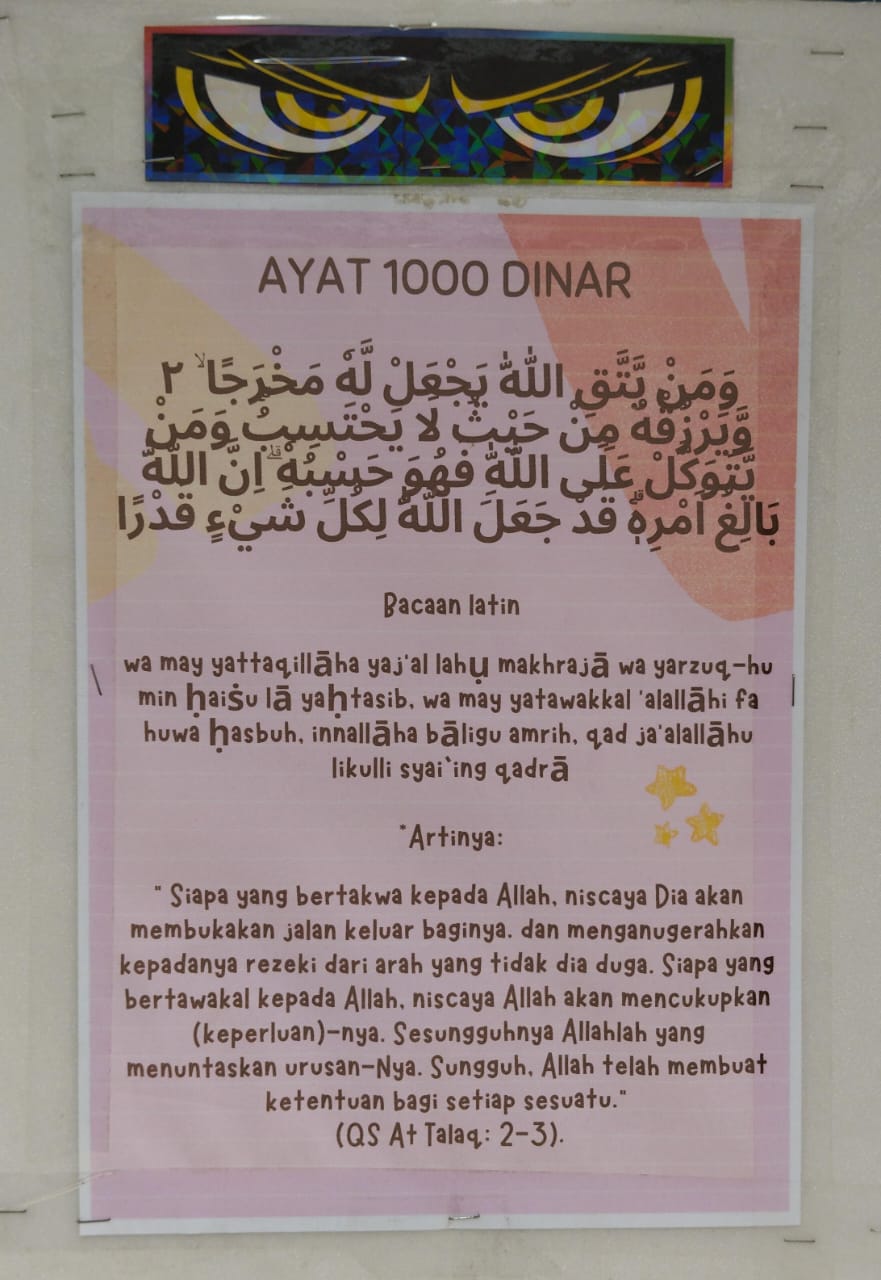 AYAT 1000 DINAR
وَمَنْ يَّتَّقِ اللّٰهَ يَجْعَلْ لَّهٗ مَخْرَجًا ۙ ٢
وَّيَرْزُقْهُ مِنْ حَيْثُ لَا يَحْتَسِبُۗ وَمَنْ
يَّتَوَكَّلْ عَلَى اللّٰهِ فَهُوَ حَسْبُهٗ ۗاِنَّ اللّٰهَ
بَالِغُ اَمْرِهٖۗ قَدْ جَعَلَ اللّٰهُ لِكُلِّ شَيْءٍ قَدْرًا
Bacaan latin
wa may yattaqillāha yaj'al lahụ makhrajā wa yarzuq-hu
min ḥaiṡu lā yaḥtasib, wa may yatawakkal 'alallāhi fa
huwa ḥasbuh, innallāha bāligu amrih, qad ja'alallāhu
likulli syai`ing qadrā
*Artinya:
" Siapa yang bertakwa kepada Allah, niscaya Dia akan
membukakan jalan keluar baginya. dan menganugerahkan
kepadanya rezeki dari arah yang tidak dia duga. Siapa yang
bertawakal kepada Allah, niscaya Allah akan mencukupkan
(keperluan)-nya. Sesungguhnya Allahlah yang
menuntaskan urusan-Nya. Sungguh, Allah telah membuat
ketentuan bagi setiap sesuatu."
(QS At Talaq: 2-3).